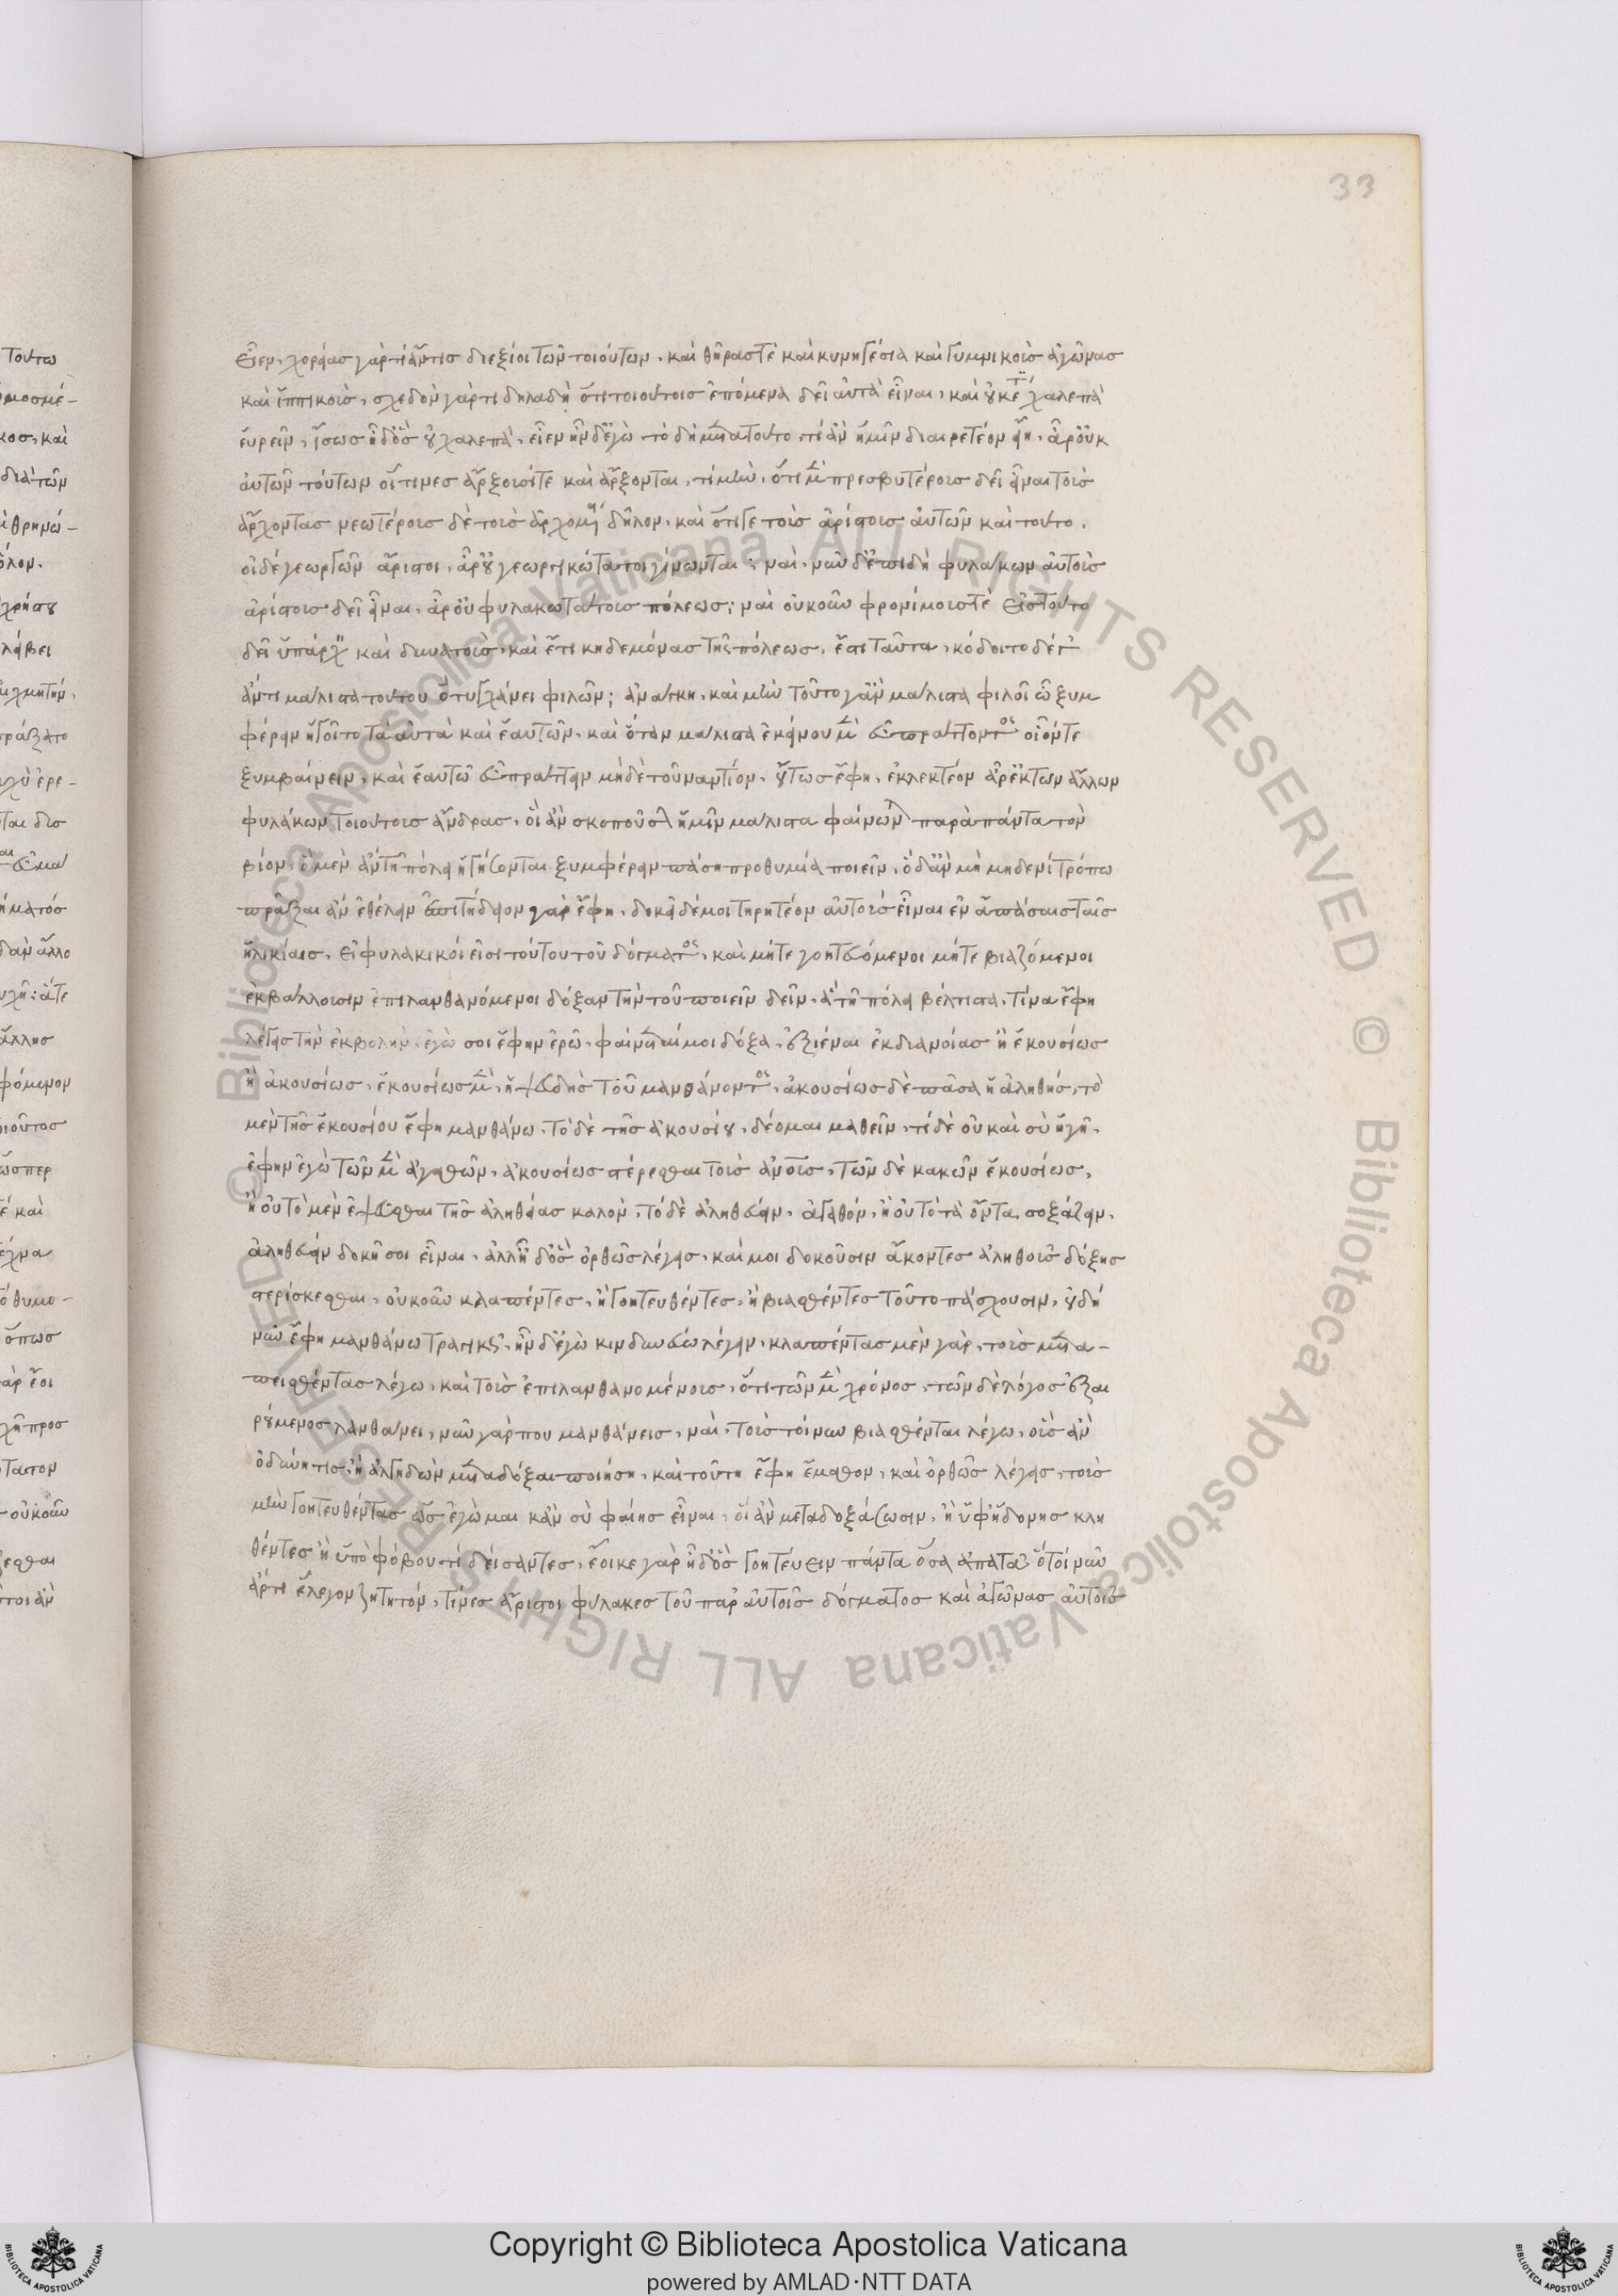 33
εἶεν, χορείας γὰρ τί ἄν τις διεξίοι τῶν τοιούτων, καὶ θήρας τὲ καὶ κυνηγέσια καὶ γυμνικοὺς ἀγῶνας
καὶ ἱππικούς, σχεδὸν γάρ τι δῆλα δὴ ὅτι τούτοις ἑπόμενα δεῖ αὐτὰ εἶναι, καὶ οὐκέτι χαλεπὰ
εὑρεῖν, ἴσως ἦ δ' ὃς οὐ χαλεπά, εἶεν ἦν δ' ἐγὼ, τὸ δὴ μετὰ τοῦτο, τί ἂν ἡμῖν διαιρετέον εἴη, ἆρ' οὐκ
αὐτῶν τούτων οἵτινες ἄρξουσί τε καὶ ἄρξονται, τί μὴν, ὅτι μὲν πρεσβυτέρους δεῖ εἶναι τοὺς
ἄρχοντας νεωτέρους δὲ τοὺς ἀρχομένους δῆλον, καὶ ὅτι γε τοὺς ἀρίστους αὐτῶν καὶ τοῦτο,
οἱ δέ γεωργῶν ἄριστοι, ἆρ' οὐ γεωργικώτατοι γίνωνται; ναί, νῦν δ' ἐπειδὴ φυλάκων αὐτοὺς
ἀρίστους δεῖ εἶναι, ἆρ' οὐ φυλακωτάτους πόλεως; ναί οὐκοῦν φρονίμους τὲ εἰς τοῦτο
δεῖ ὑπάρχειν καὶ δυνατοὺς, καὶ ἔτι κηδεμόνας τῆς πόλεως, ἔστι ταῦτα, κήδοιτο δέ γ'
ἄν τι μάλιστα τούτου ὃ τυγχάνει φιλῶν; ἀνάγκη, καὶ μὴν τοῦτο γ' ἂν μάλιστα φιλοῖ ᾧ ξυμ
φέρειν ἡγοῖτο τὰ αὐτὰ καὶ ἑαυτῶν, καὶ ὅταν μάλιστα ἐκείνου μὲν εὖ πράττοντος οἴοντε
ξυμβαίνειν, καὶ ἑαυτῶ εὖ πράττειν μὴ δὲ τοὐναντίον, οὕτως ἔφη, ἐκλεκτέον ἆρ' ἐκ τῶν ἄλλων
φυλάκων τοιούτους ἄνδρας, οἳ ἂν σκοποῦσιν ἡμῖν μάλιστα φαίνωνται παρὰ πάντα τὸν
βίον, ὃ μὲν ἂν τῇ πόλει ἡγήσονται ξυμφέρειν πάση προθυμία ποιεῖν, ὃ δ' ἂν μὴ μηδενὶ τρόπω
πρᾶξαι ἂν ἐθέλειν ἐπιτήδειον γὰρ ἔφη, δοκεῖ δέ μοι τηρητέον αὐτοὺς εἶναι ἐν ἁπάσαις ταῖς
ἡλικίαις, εἰ φυλακικοί εἰσι τούτου τοῦ δόγματος, καὶ μήτε γοητευόμενοι μήτε βιαζόμενοι
ἐκβάλλουσιν ἐπιλανθανόμενοι δόξαν τὴν τοῦ ποιεῖν δεῖν, ἃ τῇ πόλει βέλτιστα, τίνα ἔφη
λέγεις τὴν ἐκβολήν, ἐγώ σοι ἔφην ἐρῶ, φαίνεταί μοι δόξα, ἐξιέναι ἐκ διανοίας ἢ ἑκουσίως
ἢ ἀκουσίως, ἑκουσίως μὲν, ἡ ψευδὴς τοῦ μανθάνοντος, ἀκουσίως δὲ πᾶσα ἡ ἀληθής, τὸ
μὲν τῆς ἑκουσίου ἔφη μανθάνω, τὸ δὲ τῆς ἀκουσίου, δέομαι μαθεῖν, τί δὲ οὐ καὶ σὺ ἡγῇ,
ἔφην ἐγὼ τῶν μὲν ἀγαθῶν, ἀκουσίως στέρεσθαι τοὺς ἀνους, τῶν δὲ κακῶν ἑκουσίως,
ἢ οὐ τὸ μὲν ἐψεῦσθαι τῆς ἀληθείας καλὸν, τὸ δὲ ἀληθεύειν, ἀγαθόν, ἢ οὐ τὸ τὰ ὄντα δοξάζειν,
ἀληθεύειν δοκεῖ σοι εἶναι, ἀλλ' ἦ δ' ὃς ὀρθῶς λέγεις, καί μοι δοκοῦσιν ἄκοντες ἀληθοῦς δόξης
στερίσκεσθαι, οὐκοῦν κλαπέντες, ἢ γοητευθέντες, ἢ βιασθέντες τοῦτο πάσχουσιν, οὐδὲ
νῦν ἔφη μανθάνω τραγικῶς, ἦν δ' ἐγὼ κινδυνεύω λέγειν, κλαπέντας μὲν γὰρ, τοὺς μετα-
πεισθέντας λέγω, καὶ τοὺς ἐπιλανθανομένους, ὅτι τῶν μὲν χρόνος, τῶν δὲ λόγος ἐξαι
ρούμενος λανθάνει, νῦν γάρ που μανθάνεις, ναί, τοὺς τοίνυν βιασθένται λέγω, οὓς ἂν
ὀδύνη τις, ἢ ἀλγηδὼν μεταδόξαι ποιήση, καὶ τοῦτη ἔφη ἔμαθον, καὶ ὀρθῶς λέγεις, τοὺς
μὴν γοητευθέντας ὡς ἐγὼμαι κἂν σὺ φαίης εἶναι, οἳ ἂν μεταδοξάζωσιν, ἢ ὑφ' ἡδονῆς κλη
θέντες ἢ ὑπὸ φόβου τί δείσαντες, ἔοικε γὰρ ἦ δ' ὃς γοητεύειν πάντα ὅσα ἀπατᾷ ὃ τοίνυν
ἄρτι ἔλεγον ζητητόν, τίνες ἄριστοι φύλακες τοῦ παρ' αὐτοῖς δόγματος καὶ ἀγῶνας αὐτοῖς
Copyright © Biblioteca Apostolica Vaticana
powered by AMLAD·NTT DATA